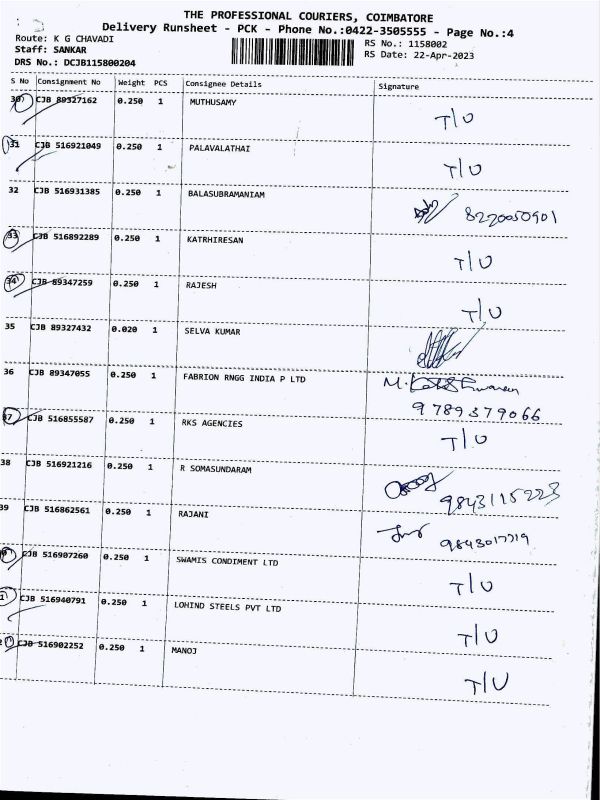 THE PROFESSIONAL COURIERS, COIMBATORE
Delivery Runsheet - PCK - Phone No.:0422-3505555 - Page No.:4
Route: K G CHAVADI RS No.: 1158002
Staff: SANKAR RS Date: 22-Apr-2023
DRS No.: DCJB115800204
S No Consignment No Weight PCS Consignee Details Signature
30 CJB 89327162 0.250 1 MUTHUSAMY T/U
31 CJB 516921049 0.250 1 PALAVALATHAI T/U
32 CJB 516931385 0.250 1 BALASUBRAMANIAM 8220050901
33 CJB 516892289 0.250 1 KATRHIRESAN T/U
34 CJB 89347259 0.250 1 RAJESH T/U
35 CJB 89327432 0.020 1 SELVA KUMAR
36 CJB 89347055 0.250 1 FABRION RNGG INDIA P LTD M.
9789379066
37 CJB 516855587 0.250 1 RKS AGENCIES T/U
38 CJB 516921216 0.250 1 R SOMASUNDARAM 9843115223
39 CJB 516862561 0.250 1 RAJANI
CJB 516907260 0.250 1 SWAMIS CONDIMENT LTD T/U
1 CJB 516940791 0.250 1 LOHIND STEELS PVT LTD T/U
CJB 516902252 0.250 1 MANOJ T/U